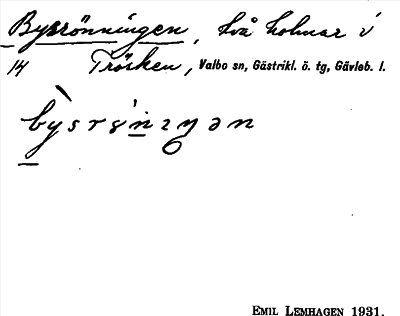 Bysrönningen, två holmar i
14 Trösken, Valbo sn, Gästrikl. ö. tg, Gävleb. l.
bỳsrɤ́nɪŋən
EMIL LEMHAGEN 1931.